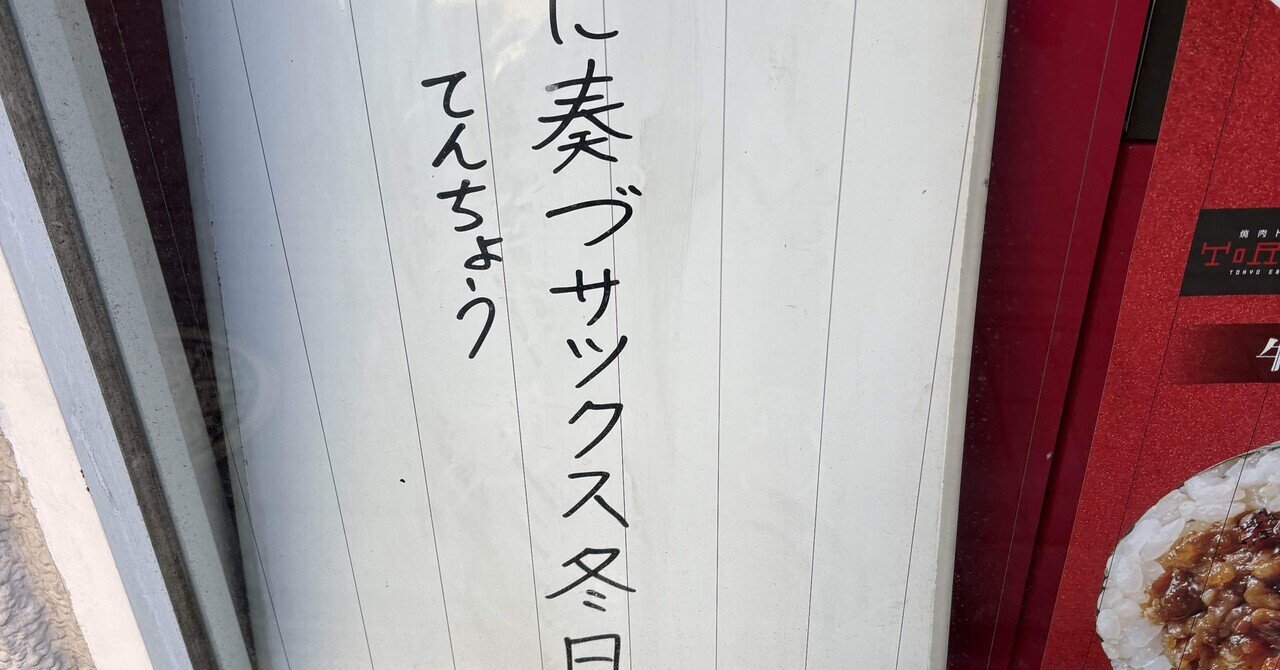 に奏づサックス冬日
てんちょう
焼肉
TOKYO